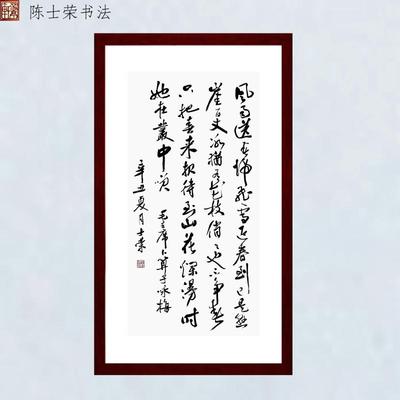 陈士荣书法
风雨送春归飞雪迎春到已是悬
崖百丈冰犹有花枝俏俏也不争春
只把春来报待到山花烂漫时
她在叢中笑
毛主席卜算子咏梅
辛丑夏月士荣